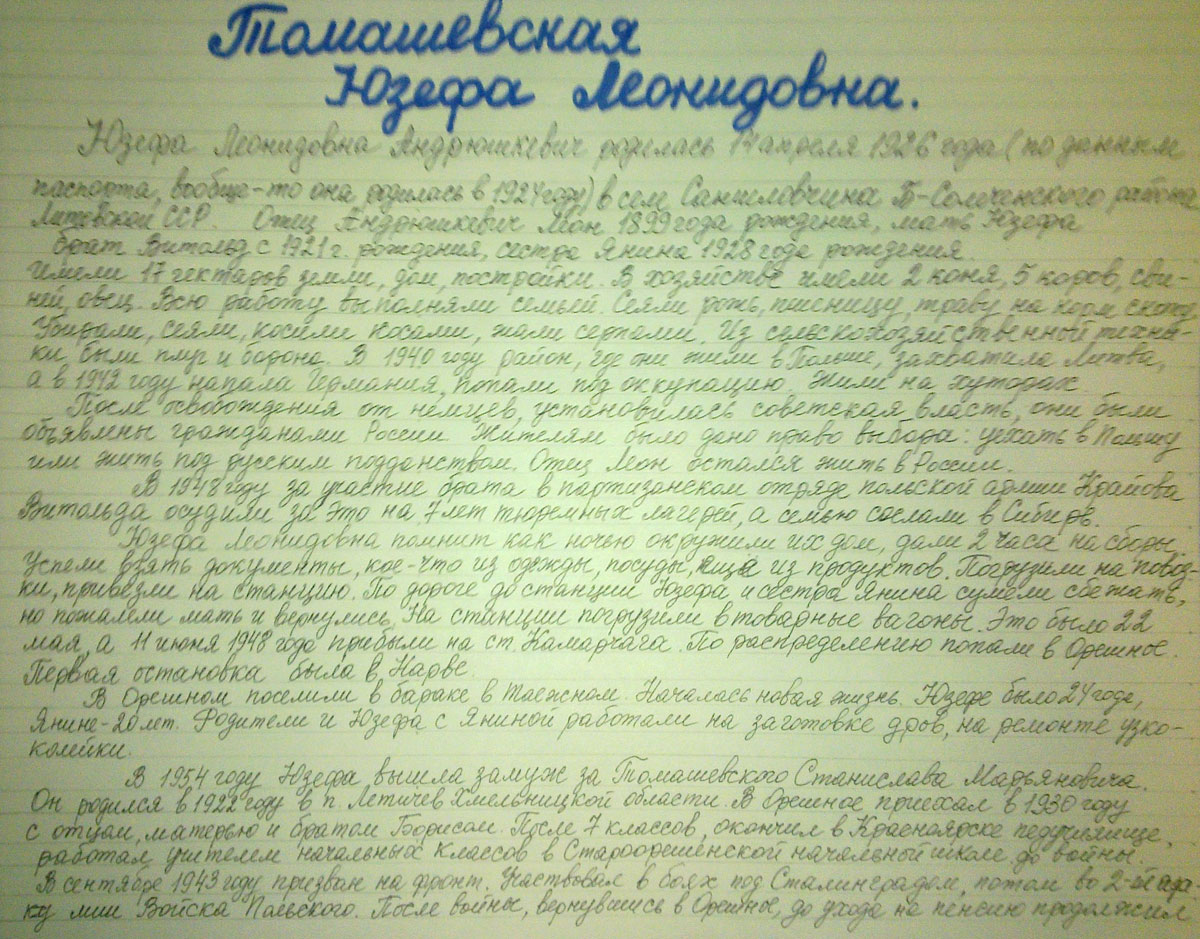 Томашевская
Юзефа Леонидовна.
Юзефа Леонидовна Андрюшкевич родилась 17 апреля 1926 года (по данным
паспорта, вообще-то она родилась в 1924 году) в сем Санкиловчина Б-Солеченского района
Литовской ССР. Отец Андрюшкевич Леон 1899 года рождения, мать Юзефа
брат Витольд с 1921 г. рождения, сестра Янина 1928 года рождения
Имели 17 гектаров земли, дом, постройки. В хозяйстве имели 2 коня, 5 коров, сви-
ней, овец. Всю работу выполняли семьей. Сеяли рожь, пшеницу, траву на корм скоту
Убирали, сеяли, косили косами, жали серпами. Из сельскохозяйственной техни-
ки были плуг и борона. В 1940 году район, где они жили в Польше, захватила Литва,
а в 1942 году напала Германия, попали под оккупацию. Жили на хуторах
После освобождения от немцев, установилась советская власть, они были
объявлены гражданами России Жителям было дано право выбора: уехать в Польшу
или жить под русским подданством. Отец Леон остался жить в России.
В 1948 году за участие брата в партизанском отряде польской армии Крайова
Витольда осудили за это на 7 лет тюремных лагерей, а семью сослали в Сибирь.
Юзефа Леонидовна помнит как ночью окружили их дом, дали 2 часа на сборы,
Успели взять документы, кое-что из одежды, посуды, из продуктов. Погрузили на повоз-
ки, привезли на станцию. По дороге до станции Юзефа и сестра Янина сумели сбежать,
но пожалели мать и вернулись. На станции погрузили в товарные вагоны. Это было 22
мая, а 11 июня 1948 года прибыли на ст. Камарчага. По распределению попали в Орешное.
Первая остановка была в Нарве.
В Орешном поселили в бараке в Таежном. Началась новая жизнь. Юзефе было 24 года,
Янине-20 лет. Родители и Юзефа с Яниной работали на заготовке дров, на ремонте узко-
колейки.
В 1954 году Юзефа вышла замуж за Томашевского Станислава Марьяновича.
Он родился в 1922 году в п. Летичев Хмельницкой области. В Орешное приехал в 1930 году
с отцом, матерью и братом Борисом. После 7 классов, окончил в Красноярске педучилище,
работал учителем начальных классов в Староорешенской начальной школе до войны.
В сентябре 1943 году призван на фронт. Участвовал в боях под Сталинградом, потом во 2-ой ар
мии Войска Польского. После войны, вернувшись в Орешное, до ухода на пенсию продолжил